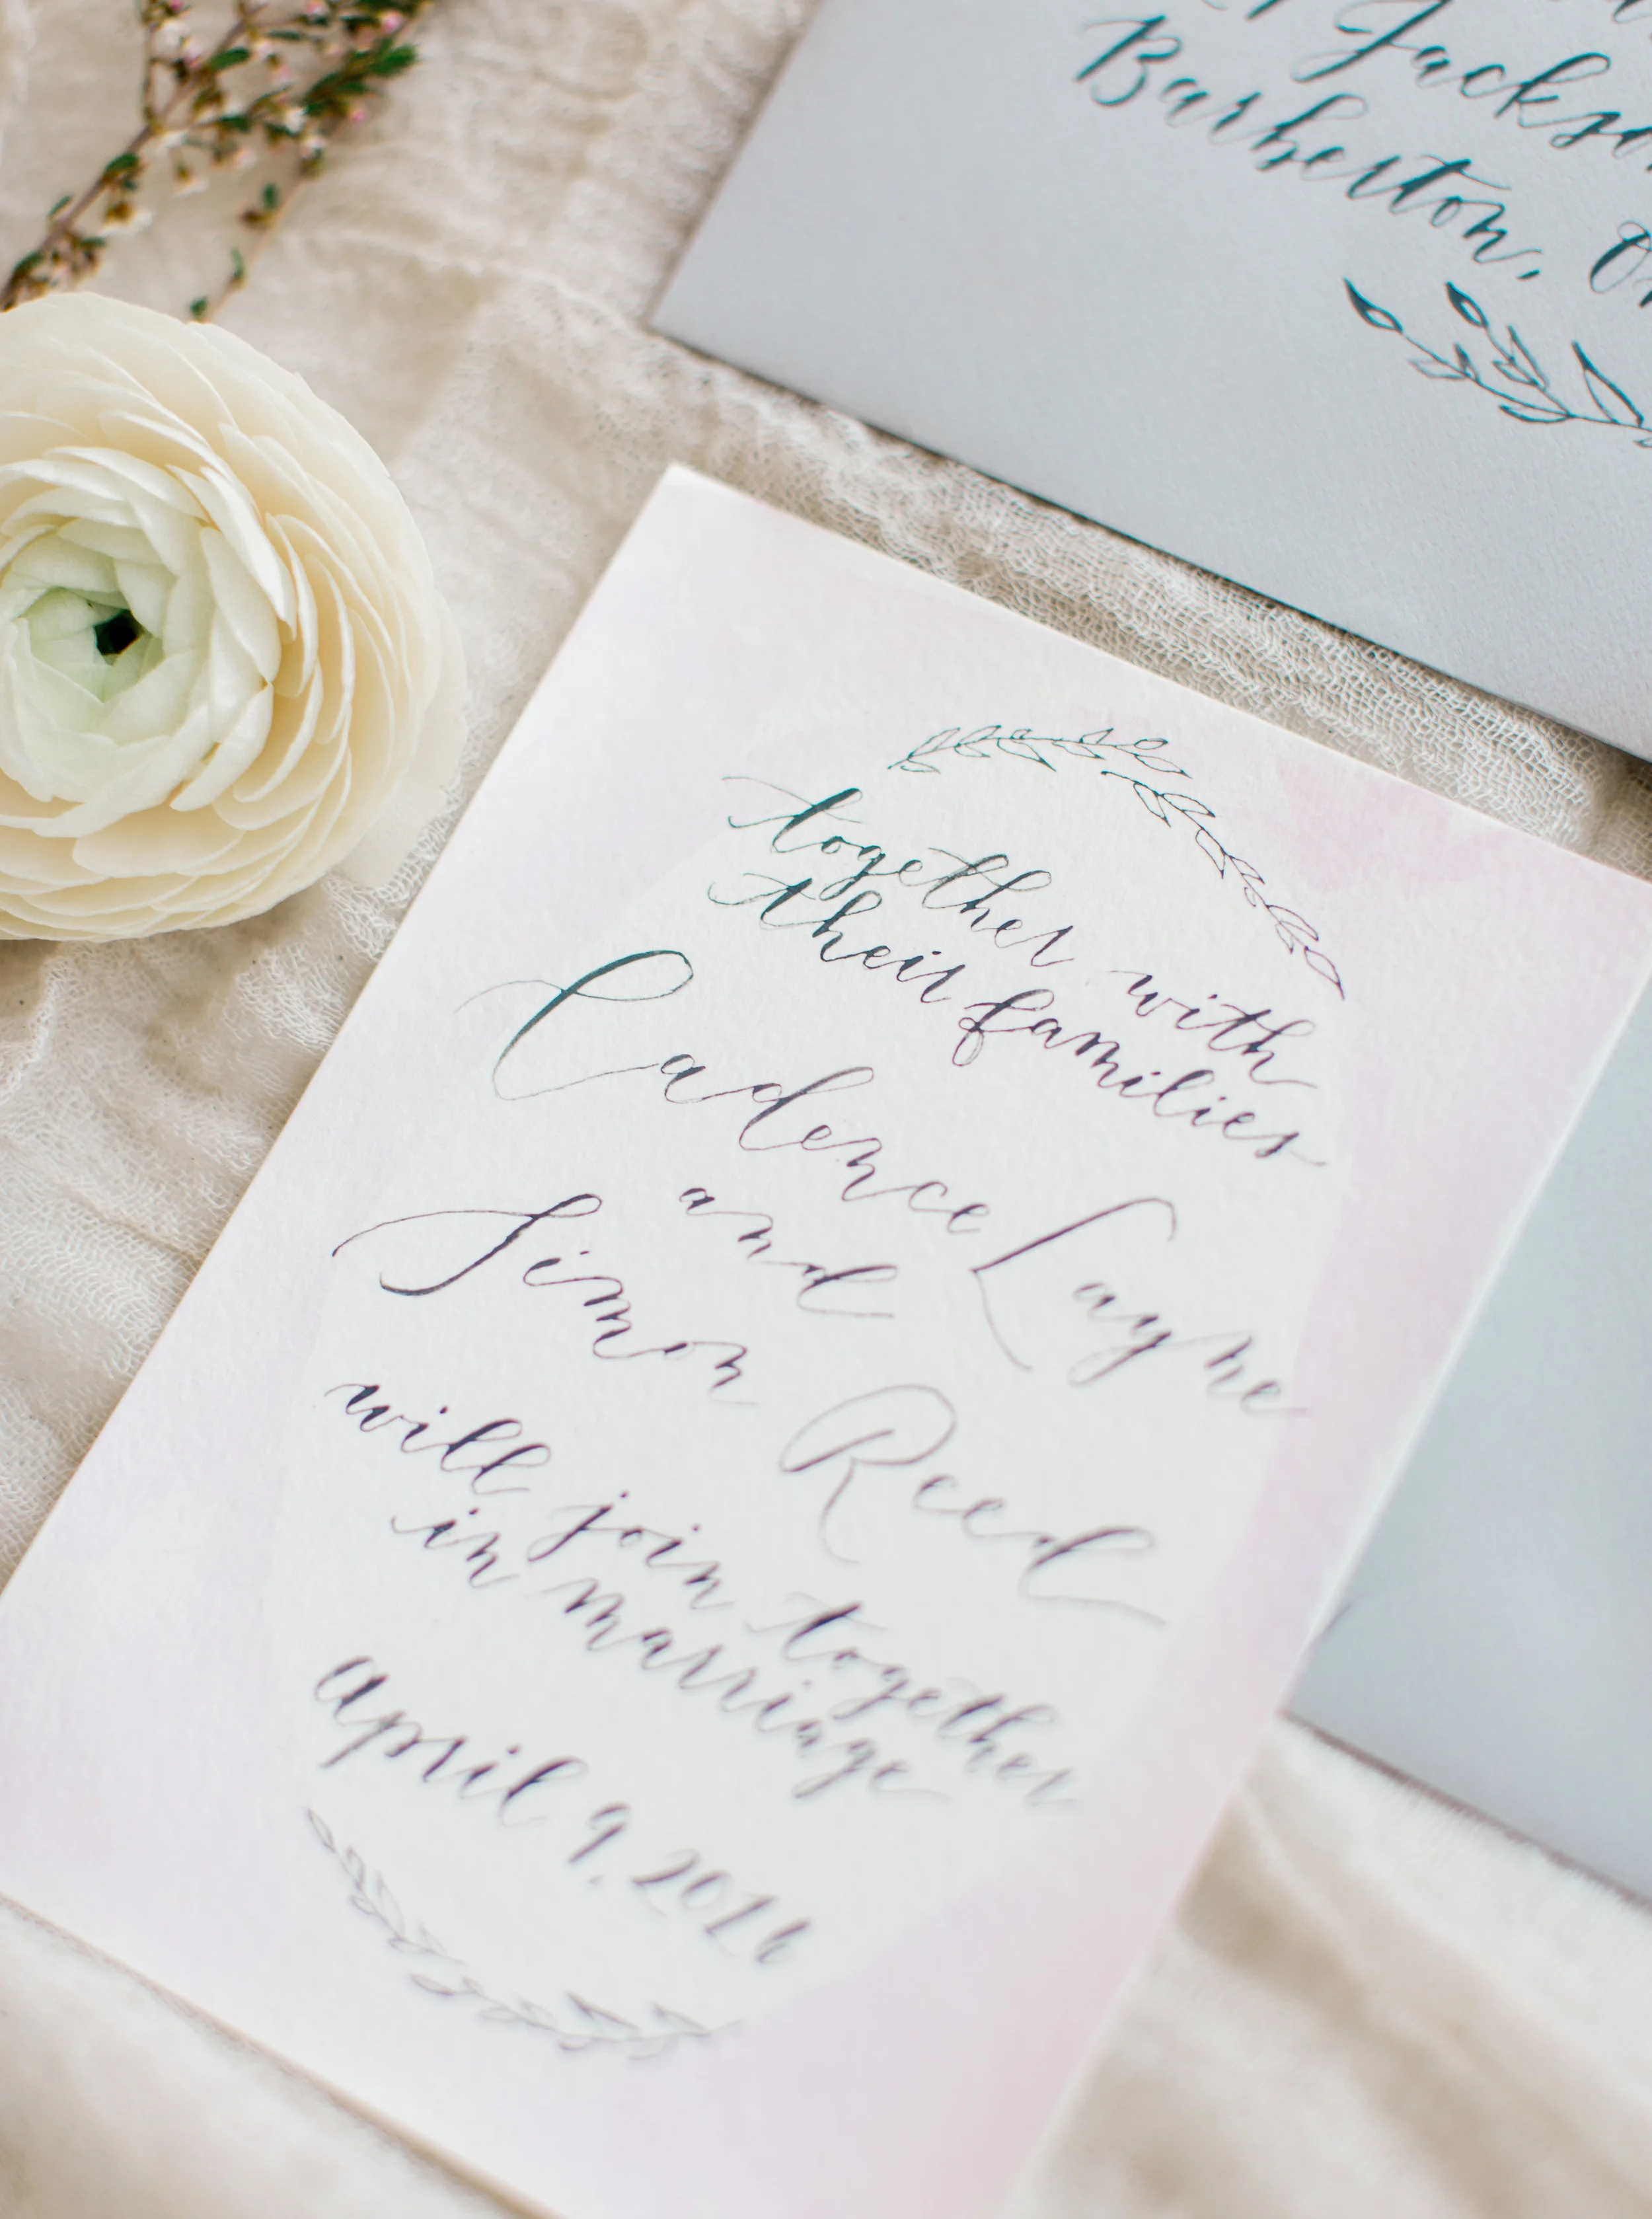 Jackso
Barberton, O
together with
their families
Cadence Layne
and
Simon Reed
will join together
in marriage
april 9, 2016